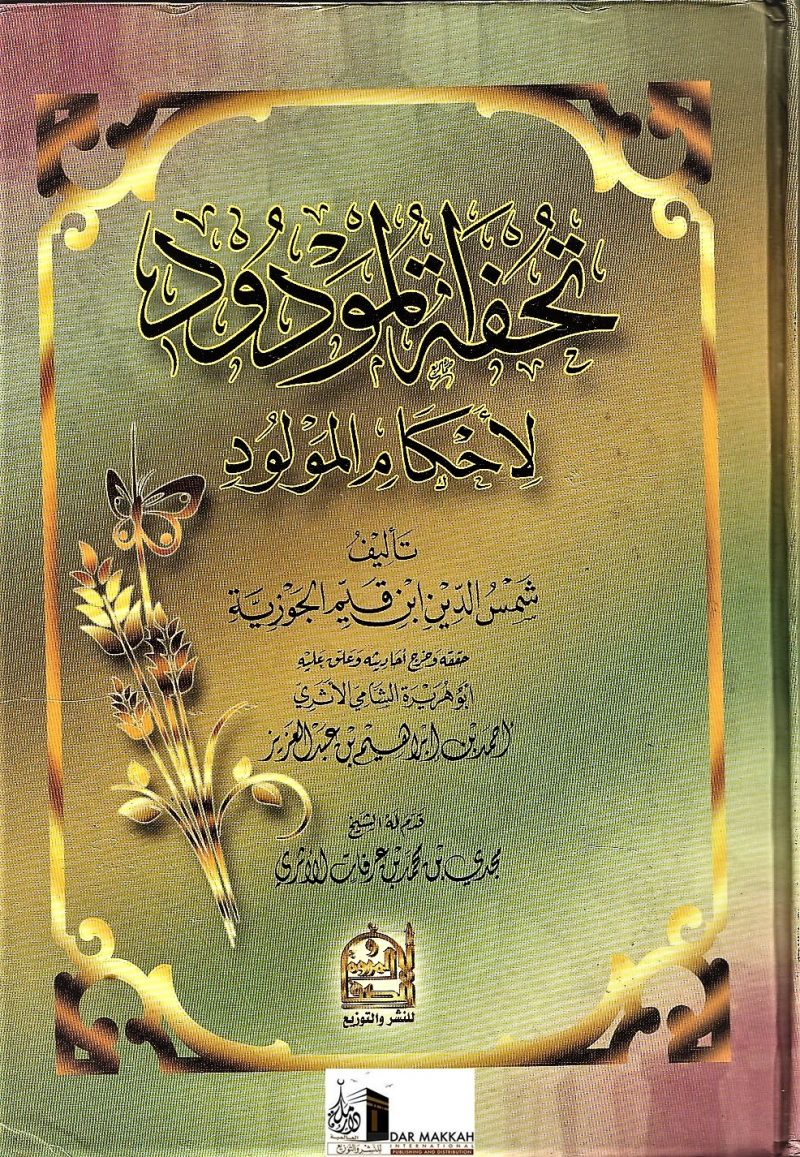 تُحْفَةُ المَوْدُودِ
لِأَحْكَامِ المَوْلُودِ
تَأليفُ
شَمْسُ الدِّينِ ابْنِ قَيِّمِ الجَوْزِيَّةِ
حققه وخرج أحاديثه وعلق عليه
أبو هريرة الشامي الأثري
أحمد بن إبراهيم بن عبد العزيز
قدم له الشيخ
مجدي بن محمد بن عرفات الأثري
للنشر والتوزيع
DAR MAKKAH
INTERNATIONAL
PUBLISHING AND DISTRIBUTION
العالمية
للنشر والتوزيع